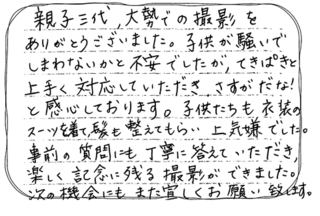 親子三代、大勢での撮影を
ありがとうございました。子供が騒いで
しまわないかと不安でしたが、てきぱきと
上手く対応していただき、さすがだな!
と感心しております。子供たちも衣装の
スーツを着て、髪も整えてもらい上気嫌でした。
事前の質問にも丁寧に答えていただき、
楽しく記念に残る撮影ができました。
次の機会にもまた宜しくお願い致します。